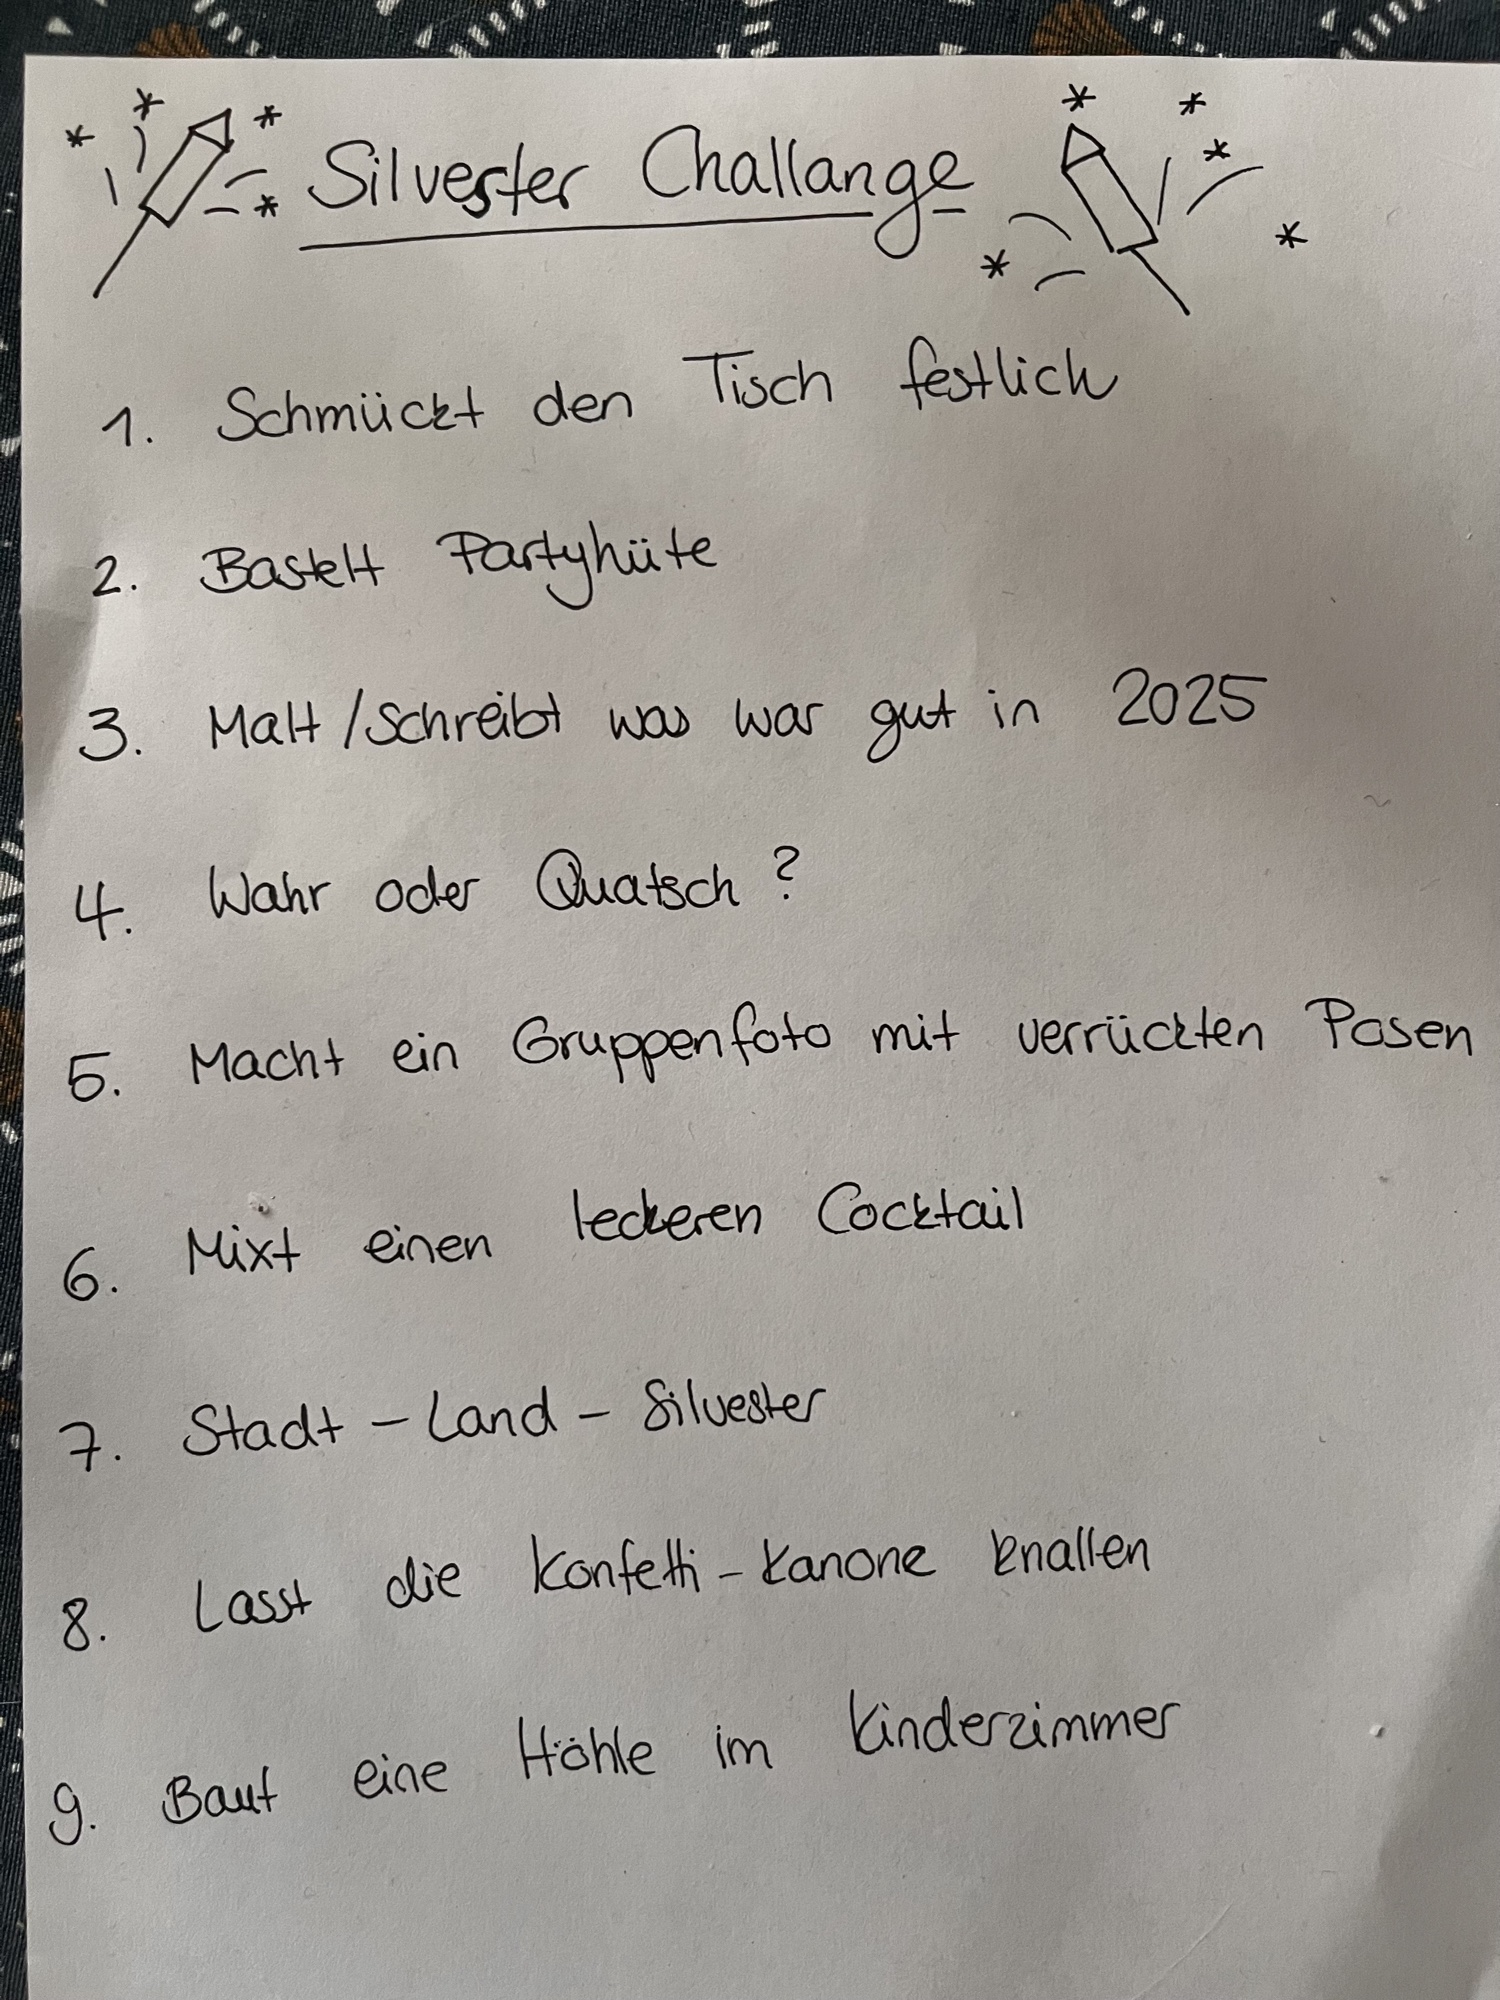 Silvester Challange
1. Schmückt den Tisch festlich
2. Bastelt Partyhüte
3. Malt/Schreibt was war gut in 2025
4. Wahr oder Quatsch?
5. Macht ein Gruppenfoto mit verrückten Posen
6. Mixt einen leckeren Cocktail
7. Stadt - Land - Silvester
8. Lasst die Konfetti - Kanone knallen
9. Baut eine Höhle im Kinderzimmer